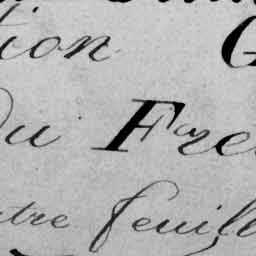 tion G
Du Fre
tre feuill